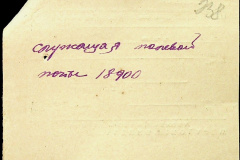 238
служащая полевой
почты 18900